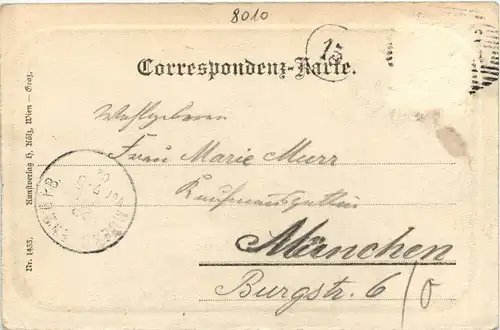 8010
Correspondenz-Karte.
Wohlgeboren
Frau Marie Murr
Kaufmannsgattin
München
Burgstr. 6/0
Nr. 1455. Kunstverlag H. Kölz, Wien – Graz.